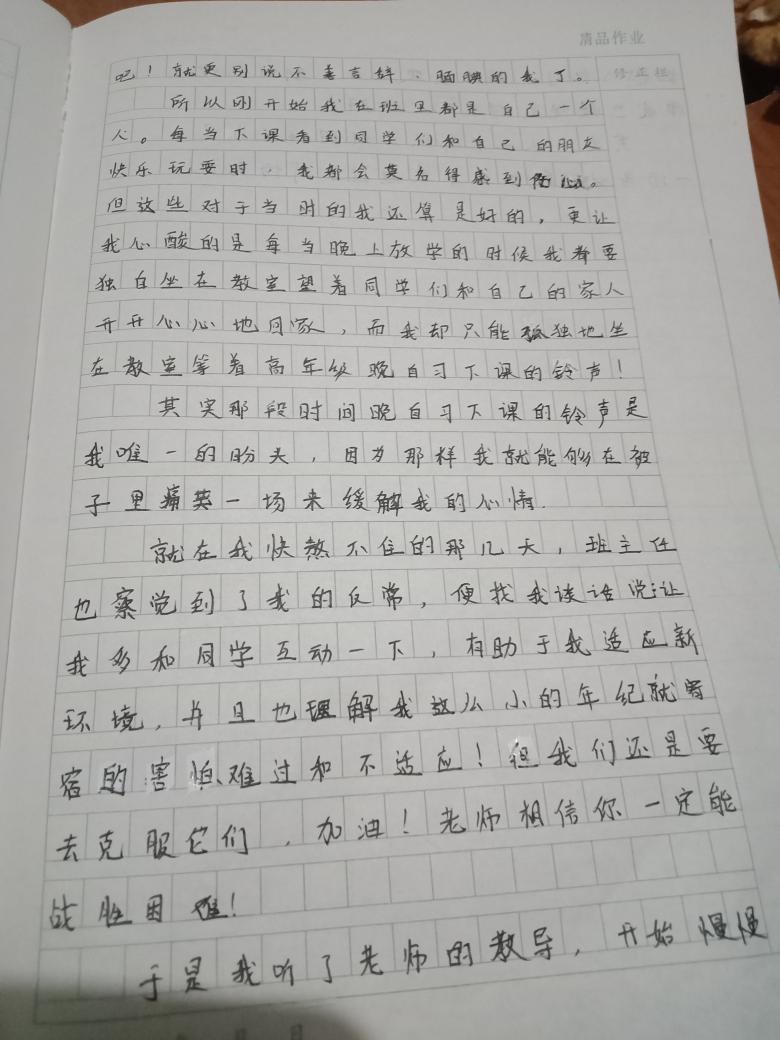 清品作业
修正栏
吧！就更别说不善言辞、腼腆的我了。
所以刚开始我在班里都是自己一个
人。每当下课看到同学们和自己的朋友
快乐玩耍时，我都会莫名得感到心。
但这些对于当时的我还算是好的，更让
我心酸的是每当晚上放学的时候我都要
独自坐在教室望着同学们和自己的家人
开开心心地回家，而我却只能孤独地坐
在教室等着高年级晚自习下课的铃声！
其实那段时间晚自习下课的铃声是
我唯一的盼头，因为那样我就能够在被
子里痛哭一场来缓解我的心情.
就在我快熬不住的那几天，班主任
也察觉到了我的反常，便找我谈话说:让
我多和同学互动一下，有助于我适应新
环境，并且也理解我这么小的年纪就寄
宿的害怕、难过和不适应！但我们还是要
去克服它们，加油！老师相信你一定能
战胜困难！
于是我听了老师的教导，开始慢慢
月 日